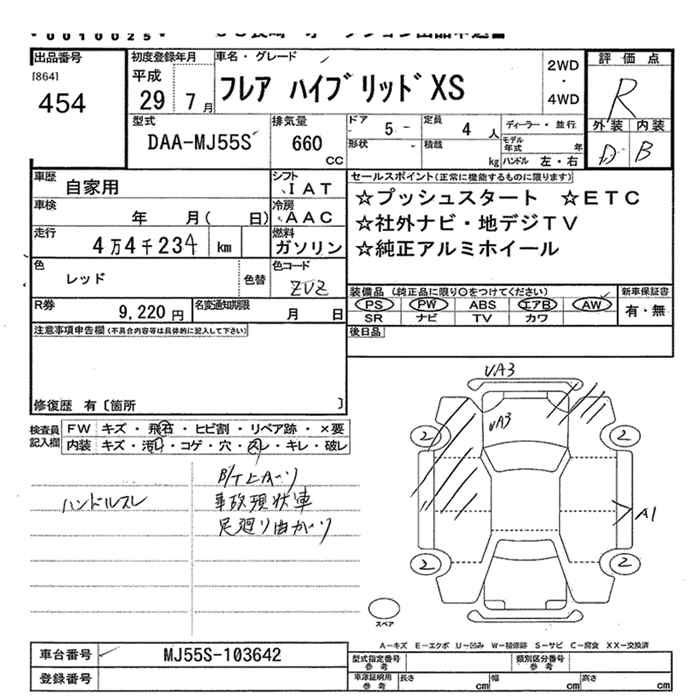 0010025
出品番号
[864]
454
初度登録年月
平成
29 7月
車名・グレード
フレア ハイブリッドXS
2WD
・
4WD
評価点
R
外装 内装
B
型式
DAA-MJ55S
排気量
660
CC
ドア
5
形状
定員
4人
積載
kg
ディーラー・並行
モデル年式 年
ハンドル 左・右
車歴
自家用
シフト
IAT
車検
年 月( 日)
冷房
AAC
走行
4万4千234 km
燃料
ガソリン
色
レッド
色替
色コード
ZUZ
R券
9,220円
名変通知期限
月 日
セールスポイント(正常に機能するものに限ります)
☆プッシュスタート ☆ETC
☆社外ナビ・地デジTV
☆純正アルミホイール
装備品(純正品に限り○をつけてください)
PS PW ABS エアB AW
SR ナビ TV カワ
新車保証書
有・無
後日品
注意事項申告欄(不具合内容等は具体的に記入して下さい)
修復歴 有〔箇所 〕
検査員記入欄
FW キズ・飛石・ヒビ割・リペア跡・×要
内装 キズ・汚レ・コゲ・穴・スレ・キレ・破レ
ハンドルスレ
事故現状車
足廻り曲がり
UA3
UA3
2
2
2
2
A1
スペア
A-キズ E-エクボ U-凹み W-補修跡 S-サビ C-腐食 XX-交換済
車台番号
MJ55S-103642
登録番号
型式指定番号
参考
類別区分番号
参考
車庫証明用
参考
長さ cm
幅 cm
高さ cm